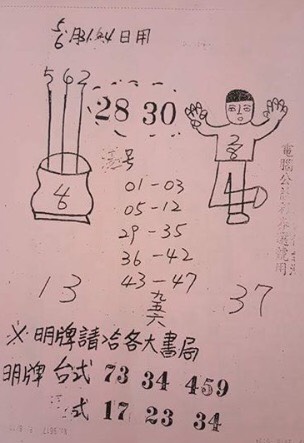 5/6月31.4日用
562
28 30
28
4
8
号
01-03
05-12
29-35
36-42
43-47
九五六
13
37
電腦公
用
※明牌請洽各大書局
明牌 台式 73 34 459
式 17 23 34